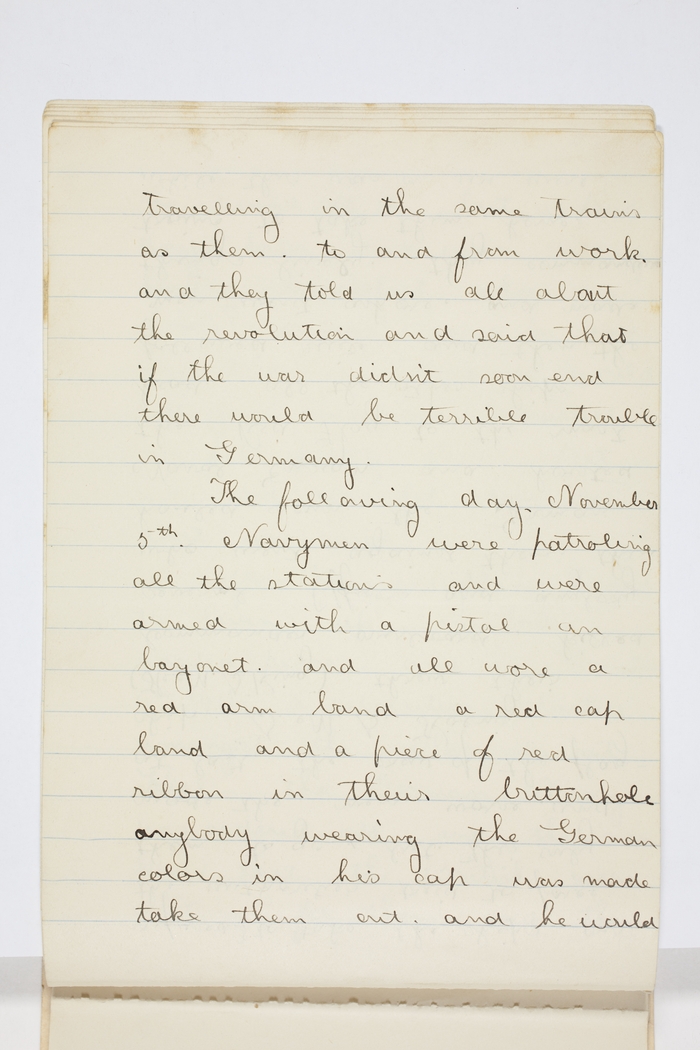 travelling in the same trains
as them. to and from work.
and they told us all about
the revolution and said that
if the war didn't soon end
there would be terrible trouble
in Germany.
The following day, November
5th. Navymen were patroling
all the stations and were
armed with a pistol an
bayonet. and all wore a
red arm band a red cap
band and a piece of red
ribbon in their buttonhole
anybody wearing the German
colors in his cap was made
take them out. and he would